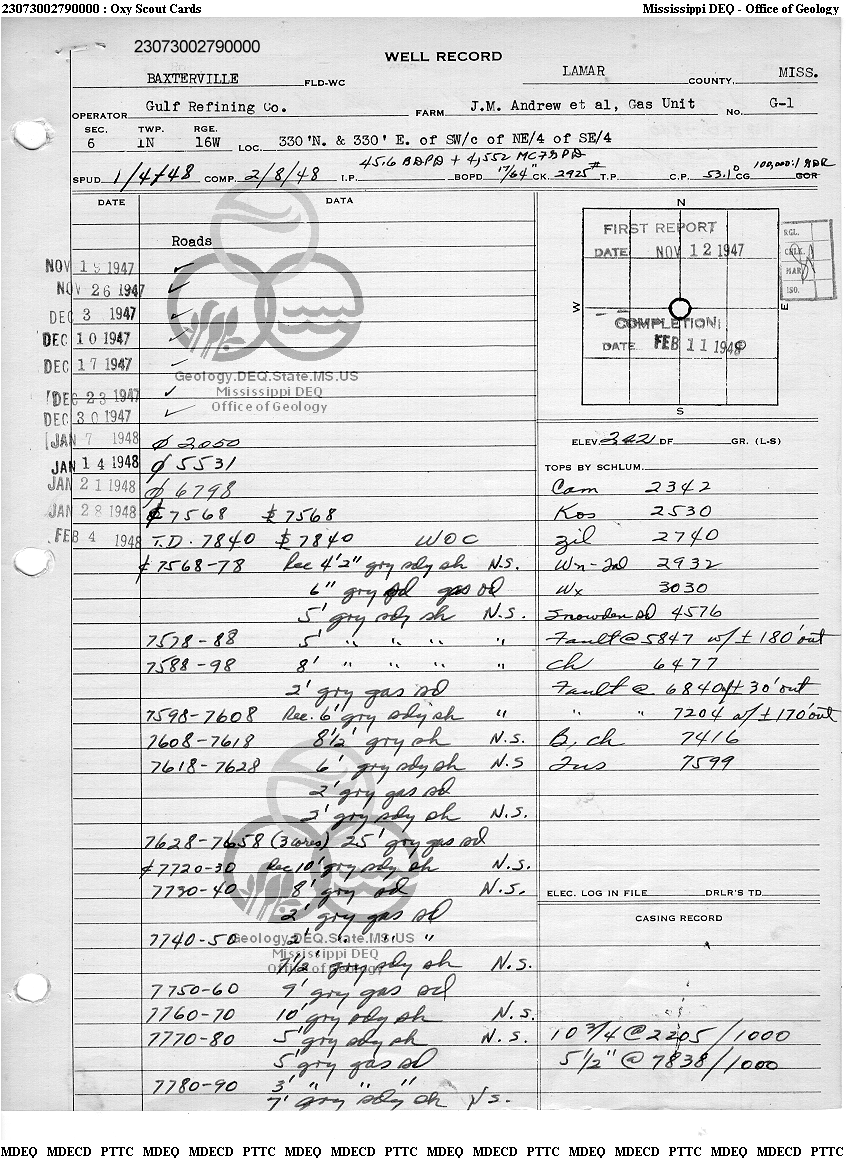 23073002790000 : Oxy Scout Cards Mississippi DEQ - Office of Geology
23073002790000
WELL RECORD
BAXTERVILLE FLD-WC LAMAR COUNTY, MISS.
OPERATOR Gulf Refining Co. FARM J.M. Andrew et al, Gas Unit No. G-1
SEC. TWP. RGE.
6 1N 16W LOC. 330'N. & 330' E. of SW/c of NE/4 of SE/4
SPUD 1/4/48 COMP. 2/8/48 I.P. 45.6 BDPD + 4,552 MCFGPD BOPD 17/64" CK. 2925# T.P. C.P. 53.1° CG 100,000:1 GOR GOR
DATE DATA
Roads
NOV 19 1947 ✓
NOV 26 1947 ✓
DEC 3 1947 ✓
DEC 10 1947 ✓
DEC 17 1947 ✓
DEC 23 1947 ✓
DEC 30 1947 ✓
JAN 7 1948 ϕ 2050
JAN 14 1948 ϕ 5531
JAN 21 1948 ϕ 6798
JAN 28 1948 7568 7568
FEB 4 1948 T.D. 7840 7840 WOC
7568-78 Rec 4'2" gry sdy sh N.S.
6" gry sd gas sd
5' gry sdy sh N.S.
7578-88 5' " " " "
7588-98 8' " " " "
2' gry gas sd
7598-7608 Rec. 6' gry sdy sh "
7608-7618 8 1/2' gry sh N.S.
7618-7628 6' gry sdy sh N.S
2' gry gas sd
2' gry sdy sh N.S.
7628-7658 (3 cores) 25' gry gas sd
7720-30 Rec 10' gry sdy sh N.S.
7730-40 8' gry sd N.S.
2' gry gas sd
7740-50 2' " " "
7 1/2' gry sdy sh N.S.
7750-60 9' gry gas sd
7760-70 10' gry sdy sh N.S.
7770-80 5' gry sdy sh N.S.
5' gry gas sd
7780-90 3' " " "
7' gry sdy sh N.S.
Geology.DEQ.State.MS.US
Mississippi DEQ
Office of Geology
Geology.DEQ.State.MS.US
Mississippi DEQ
Office of Geology
N
W
E
S
FIRST REPORT
DATE NOV 12 1947
COMPLETION
DATE FEB 11 1948
RGL.
CHLK.
MAP
ISO.
ELEV. 242 DF GR. (L-S)
TOPS BY SCHLUM.
Cam 2342
Kos 2530
Zil 2740
Wn-Sd 2932
Wx 3030
Snowden sd 4576
Fault @ 5847 w/ ± 180' out
Ch 6477
Fault @ 6840 w/± 30' out
" " 7204 w/ ± 170' out
B, ch 7416
Tus 7599
ELEC. LOG IN FILE DRLR'S TD
CASING RECORD
10 3/4 @ 2205/1000
5 1/2" @ 7838/1000
MDEQ MDECD PTTC MDEQ MDECD PTTC MDEQ MDECD PTTC MDEQ MDECD PTTC MDEQ MDECD PTTC MDEQ MDECD PTTC